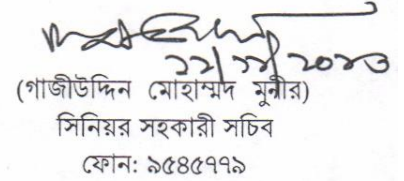 ২২/১১/২০২৩
(গাজীউদ্দিন মোহাম্মদ মুনীর)
সিনিয়র সহকারী সচিব
ফোন: ৯৫৪৫৭৭৯